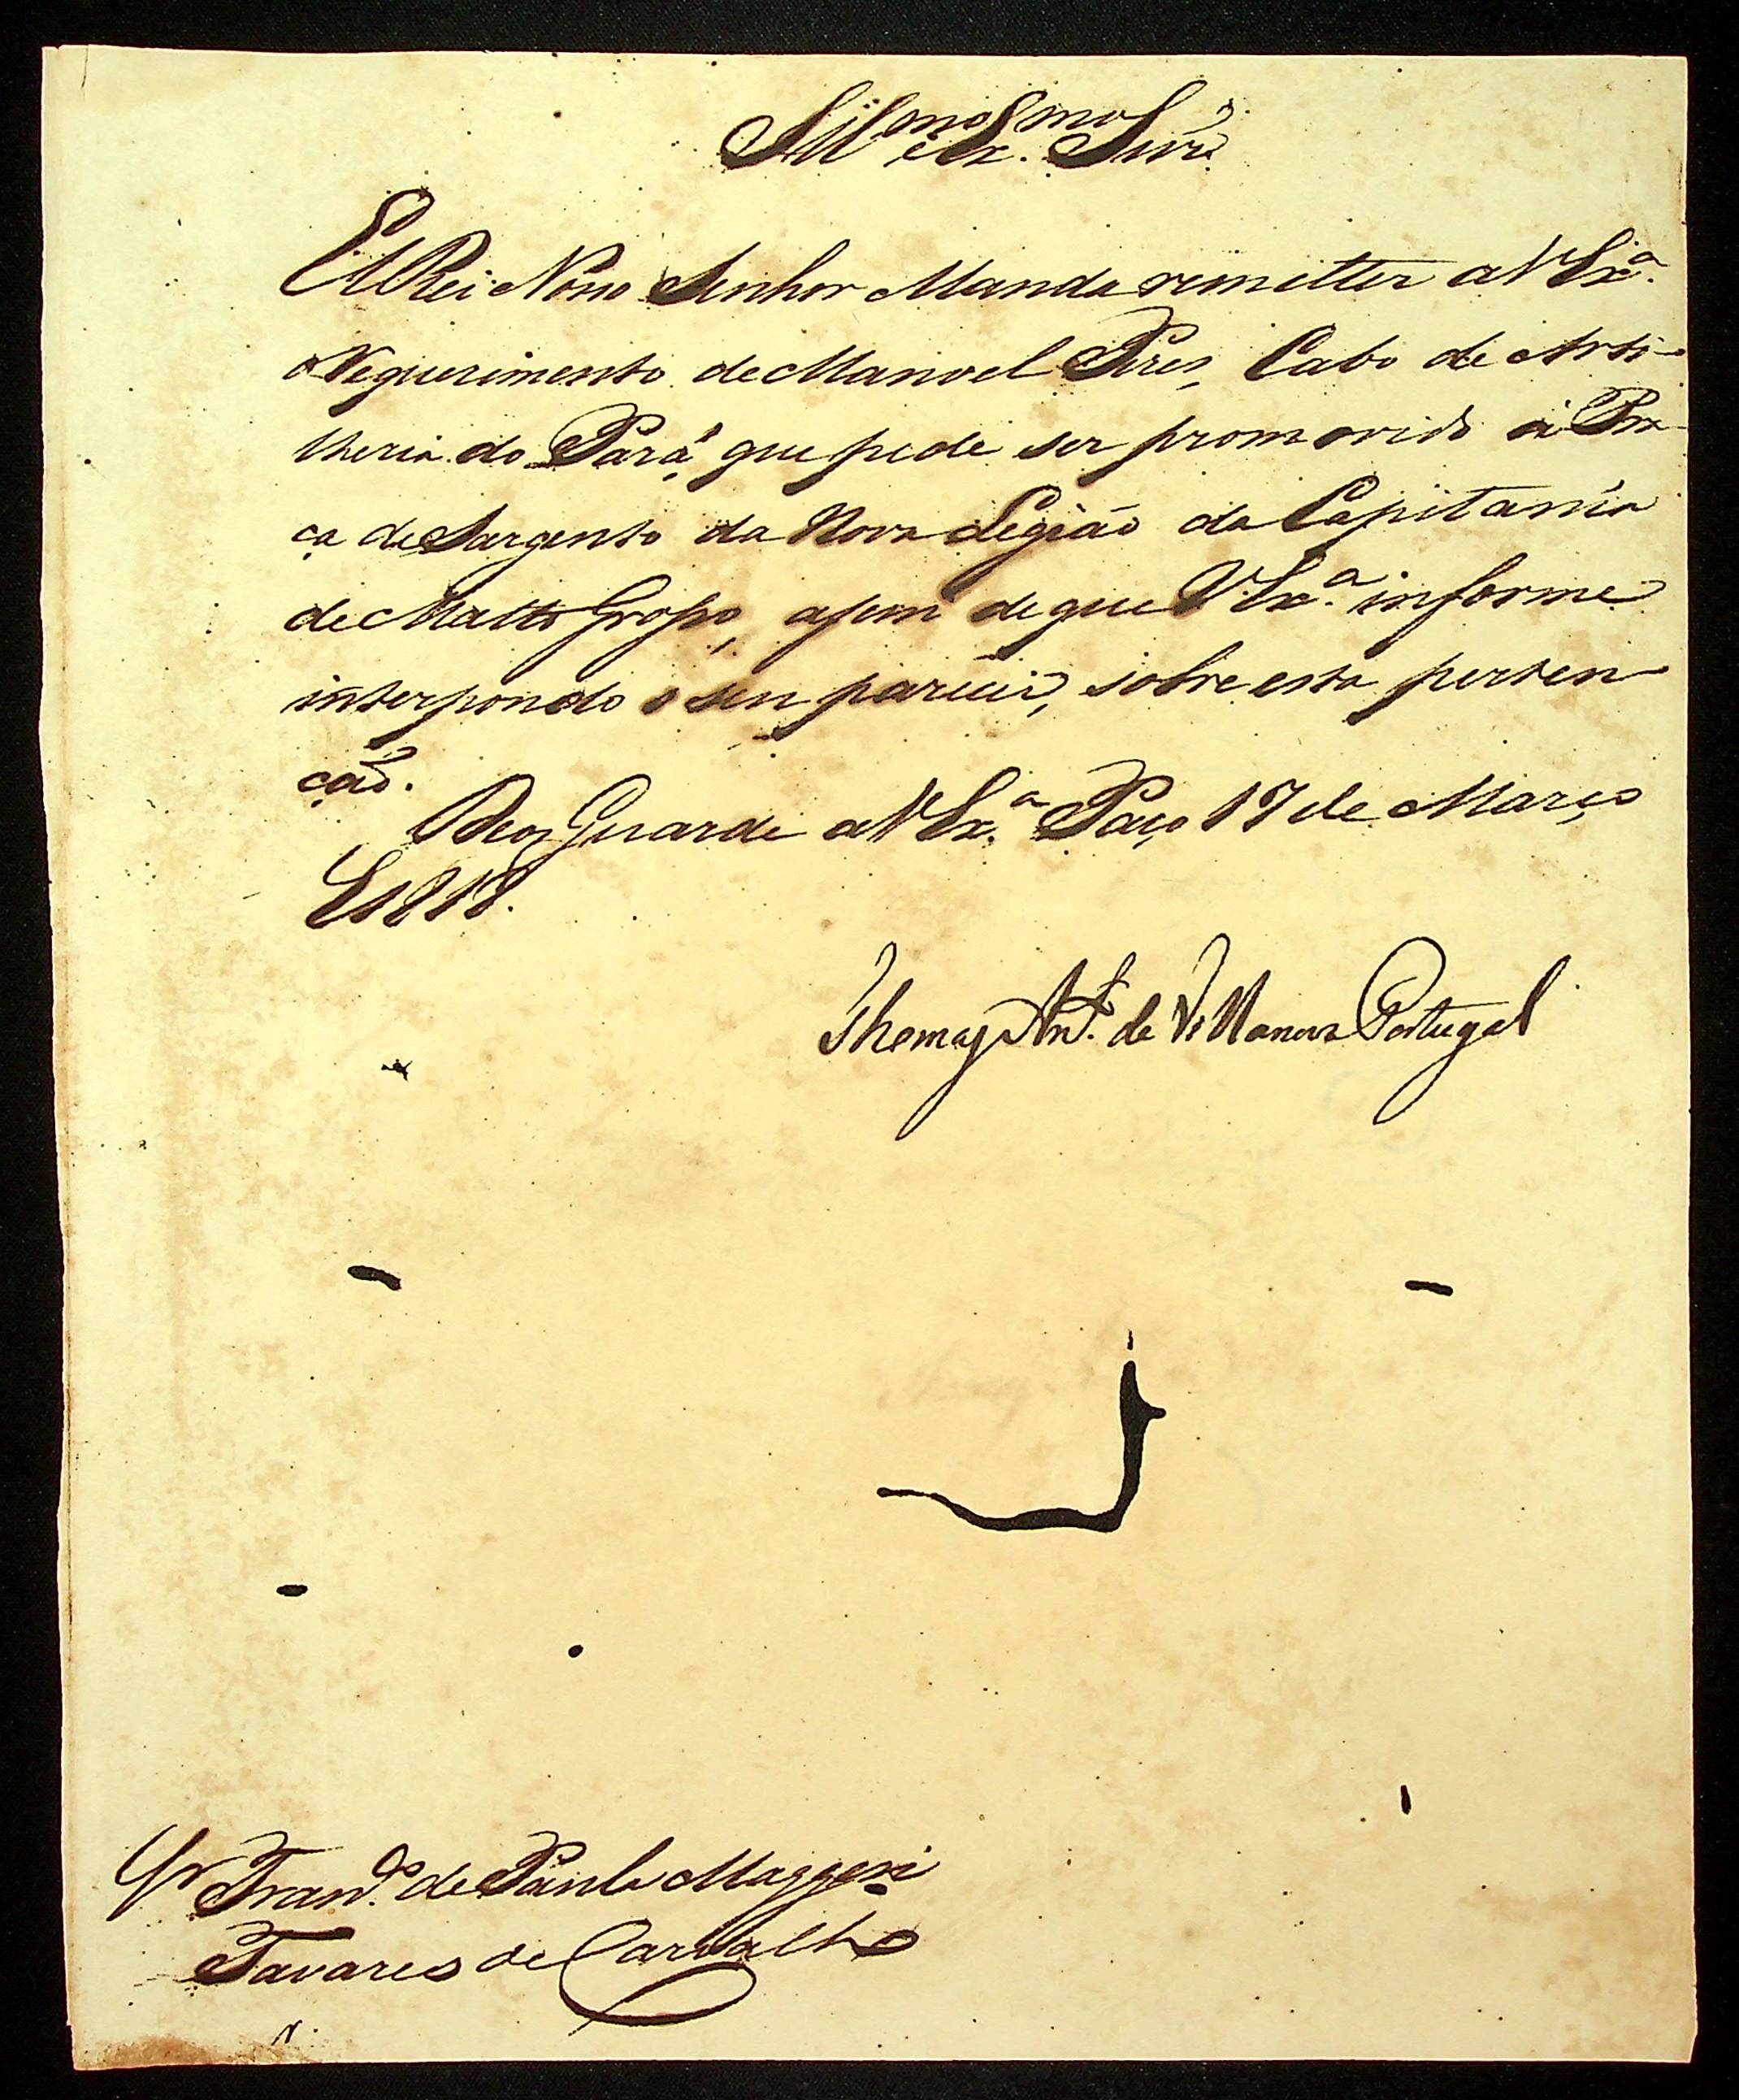 Ill.mo e Ex.mo Snr.
El Rei Nosso Senhor Manda remetter a V Ex.a
o Requerimento de Manoel Pires, Cabo de Arti-
lheria do Pará, que pede ser promovido á Pra-
ça de Sargento da Nova Legião da Capitania
de Matto Grosso, afim de que V. Ex.a informe
interpondo o seu parecer, sobre esta perten-
ção.
Deos Guarde a V Ex.a Paço 17 de Março
de 1818.
Thomaz Ant.o de Villanova Portugal
Sr Fran.co de Paula Maggesi
Tavares de Carvalho